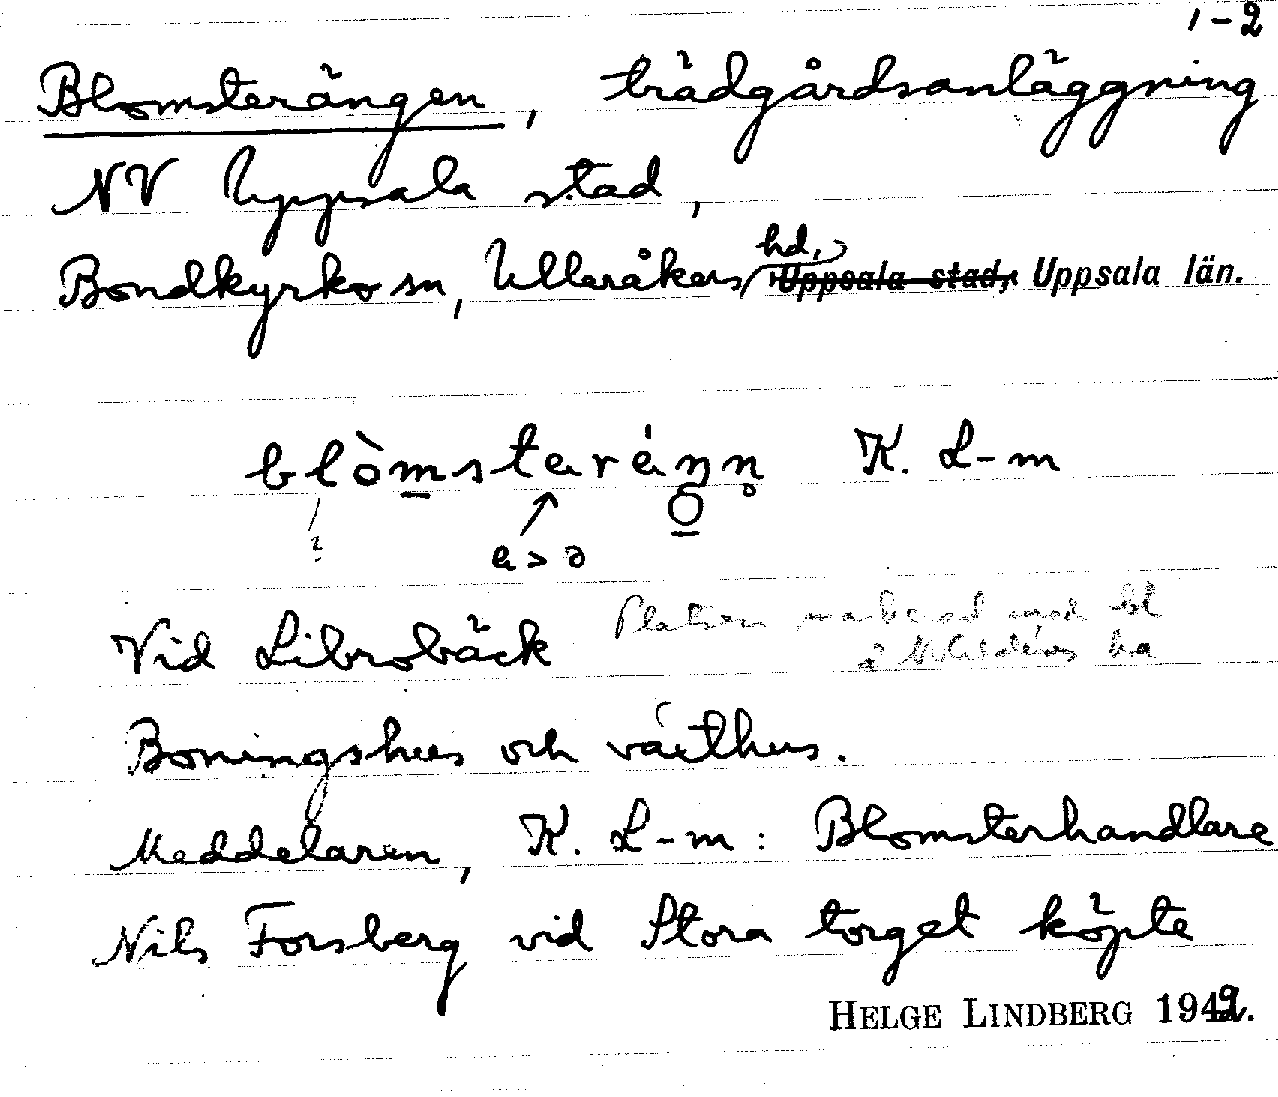 1-2
Blomsterängen, trädgårdsanläggning
NV Uppsala stad,
Bondkyrko sn, Ulleråkers hd, Uppsala stad, Uppsala län.
blòmsterénn K. L-m
e > ə
Vid Librobäck
Platsen markerad med bl
å
Boningshus och växthus.
Meddelaren, K. L-m: Blomsterhandlare
Nils Forsberg vid Stora torget köpte
HELGE LINDBERG 1942.